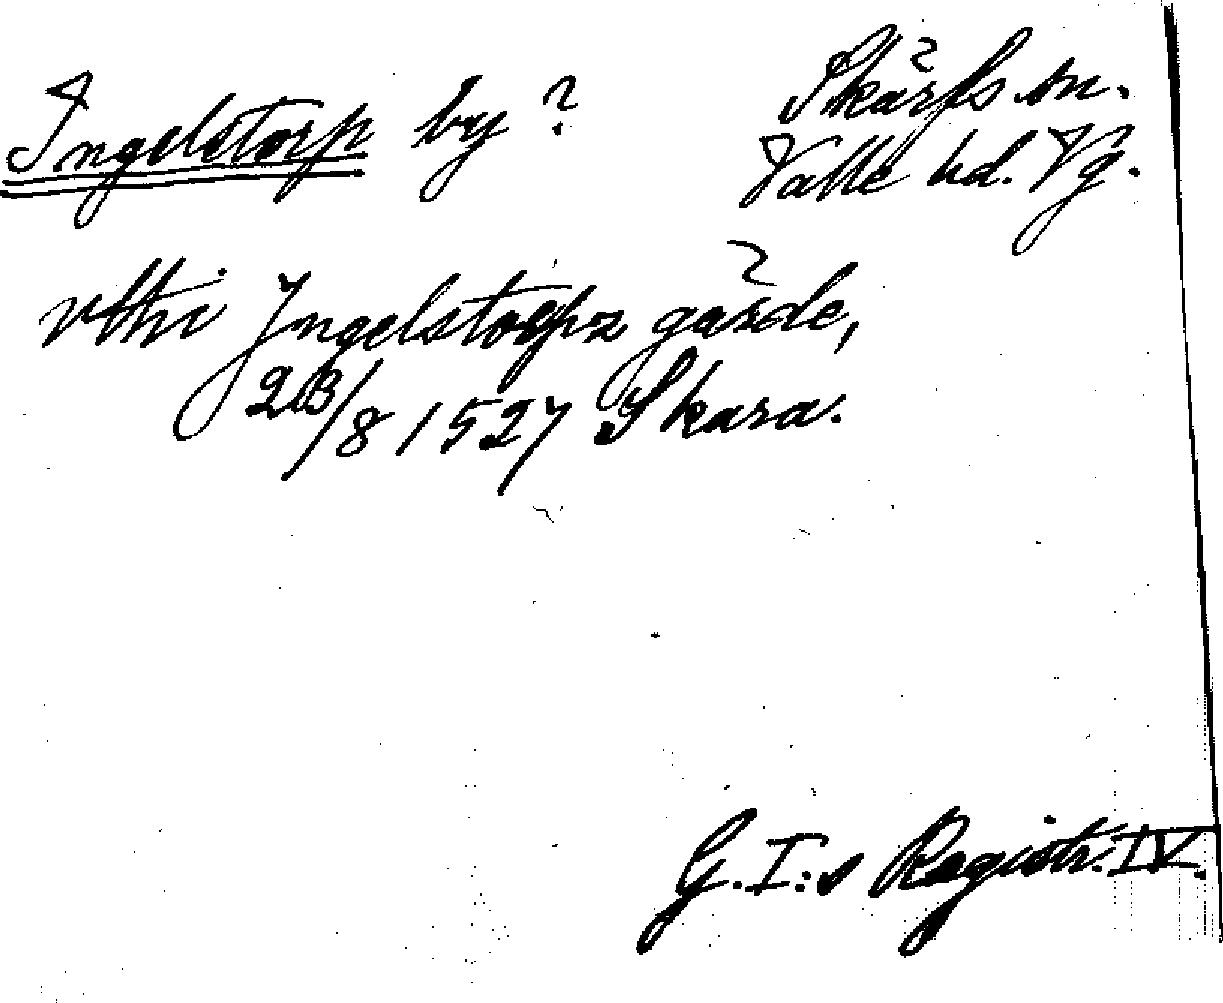 Ingelstorp by?
Skärfs sn.
Valle hd. Vg.
vthi Jngelstorpz gärde,
23/8 1527 Skara.
G.I:s Registr. IV.